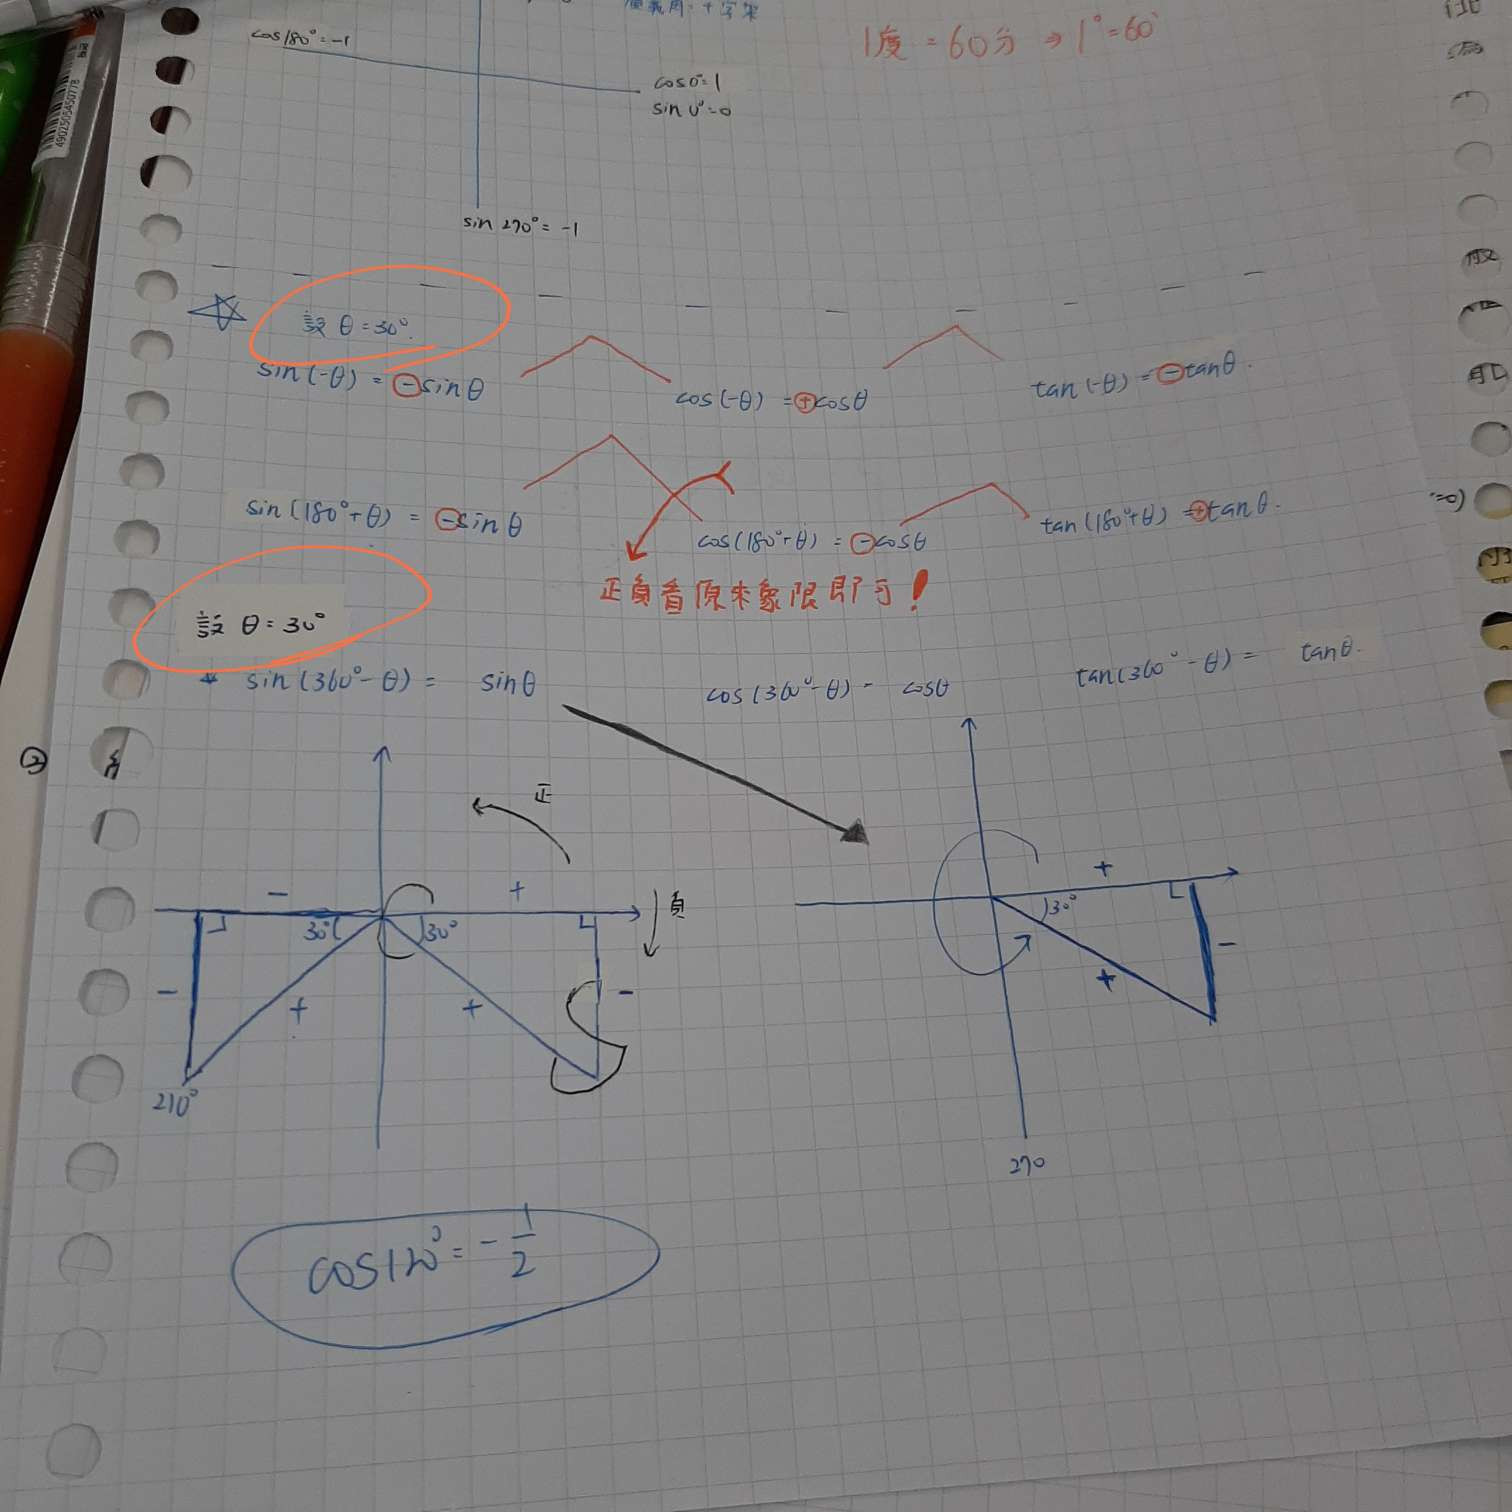 cos180°=-1
1度 = 60分 ⇒ 1°=60'
cos0°=1
sin0°=0
sin 270° = -1
4902505450778
設 θ = 30°.
sin(-θ) = -sinθ
cos(-θ) = +cosθ
tan(-θ) = -tanθ.
sin(180°+θ) = -sinθ
cos(180°+θ) = -cosθ
tan(180°+θ) = +tanθ.
正負看原來象限即可!
設 θ = 30°
sin(360°-θ) = sinθ
cos(360°-θ) - cosθ
tan(360°-θ) = tanθ.
②
正
- + 負
30° 30°
- + + -
210°
+
30°
+ -
270
cos120° = -1/2
=0)